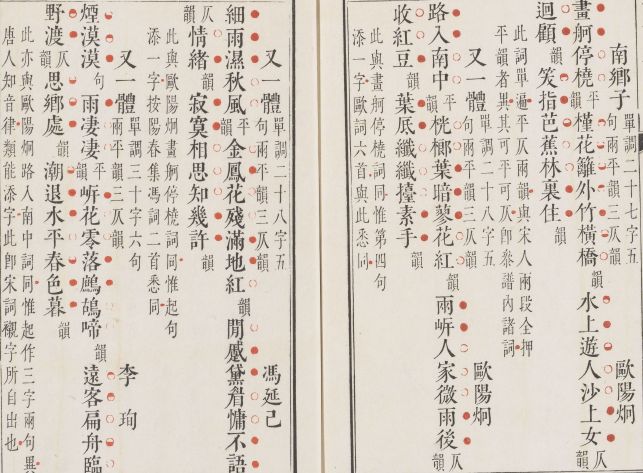 南鄉子 單調二十七字五句兩平韻三仄韻 歐陽炯
畫舸停橈平韻槿花籬外竹橫橋韻水上遊人沙上女仄韻
迴顧韻笑指芭蕉林裏住韻
此詞單遍平仄兩韻與宋人兩段全押
平韻者異其可平可仄即叅譜內諸詞
又一體 單調二十八字五句兩平韻三仄韻 歐陽炯
路入南中平韻桄榔葉暗蓼花紅韻兩㟁人家微雨後仄韻
收紅豆韻葉底纖纖擡素手韻
此與畫舸停橈詞同惟第四句
添一字歐詞六首與此悉同
又一體 單調二十八字五句兩平韻三仄韻 馮延己
細雨濕秋風平韻金鳳花殘滿地紅韻閒蹙黛眉慵不語仄韻
情緒韻寂寞相思知幾許韻
此與歐陽炯畫舸停橈詞同惟起句
添一字按陽春集馮詞二首悉同
又一體 單調三十字六句兩平韻三仄韻 李珣
煙漠漠句雨凄凄平韻㟁花零落鷓鴣啼韻遠客扁舟臨
野渡仄韻思鄉處韻潮退水平春色暮韻
此亦與歐陽炯路入南中詞同惟起作三字兩句異
唐人知音律類能添字此即宋詞襯字所自出也